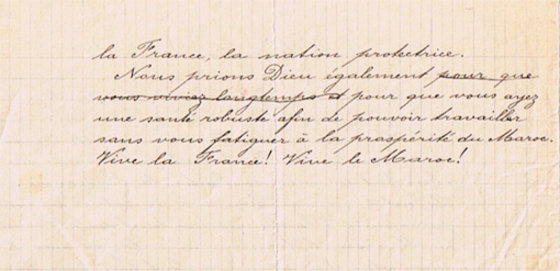 la France, la nation protectrice.
Nous prions Dieu également pour que
vous viviez longtemps et pour que vous ayez
une santé robuste afin de pouvoir travailler
sans vous fatiguer à la prospérité du Maroc.
Vive la France! Vive le Maroc!